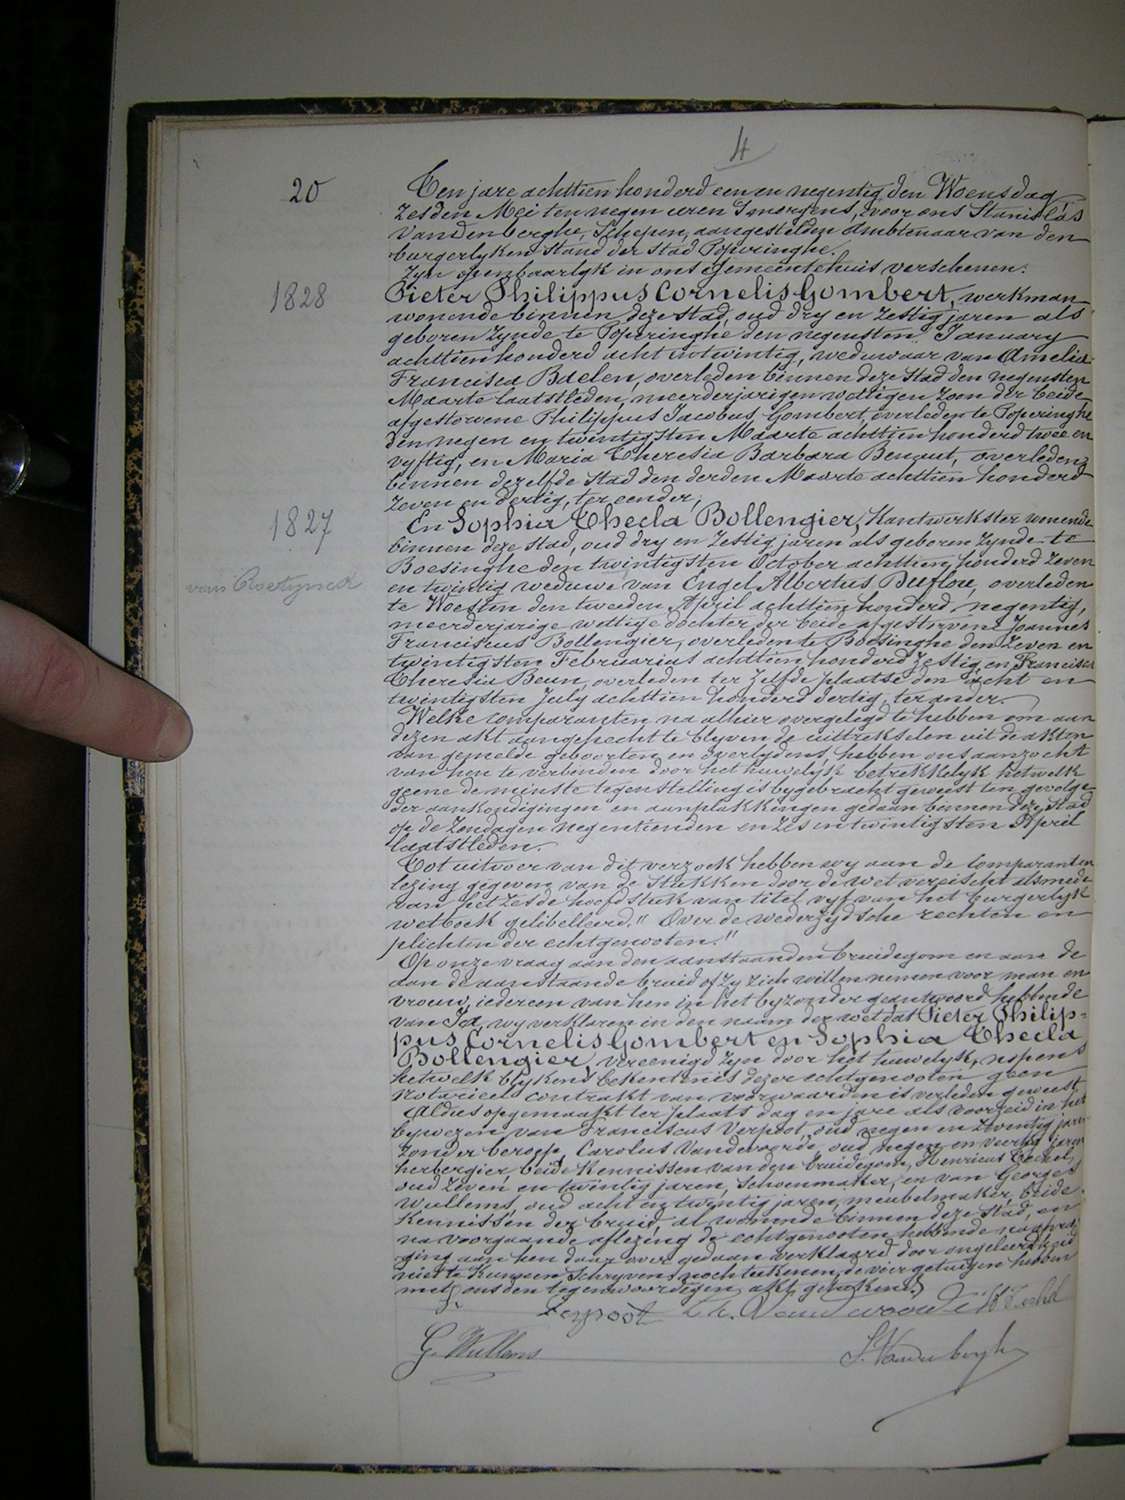 4
20
Ten jare achttien honderd een en negentig den Woensdag
zesden Mei ten negen uren 's morgens, voor ons Stanislas
Vandenberghe, Schepen, aangestelden Ambtenaar van den
burgerlyken stand der stad Poperinghe.
Zyn openbaarlyk in ons Gemeentehuis verschenen:
1828
Pieter Philippus Cornelis Gombert, werkman
wonende binnen deze stad, oud dry en zestig jaren als
geboren zynde te Poperinghe den negensten January
achttien honderd acht en twintig, weduwaar van Amelia
Francisca Baelen, overleden binnen deze stad den negensten
Maarte laatstleden, meerderjarigen wettigen zoon der beide
afgestorvene Philippus Jacobus Gombert, overleden te Poperinghe
den negen en twintigsten Maarte achttien honderd twee en
vyftig, en Maria Theresia Barbara Benaut, overleden
binnen dezelfde stad den derden Maarte achttien honderd
zeven en dertig, ter eender;
1827
En Sophia Thecla Bollengier, Kantwerkster wonende
binnen deze stad, oud dry en zestig jaren als geboren zynde te
Boesinghe den twintigsten October achttien honderd zeven
van
en twintig weduwe van Engel Albertus Duflou, overleden
te Woesten den tweeden April achttien honderd negentig,
meerderjarige wettige dochter der beide afgestorvene Joannes
Franciscus Bollengier, overleden te Boesinghe den zeven en
twintigsten Februarius achttien honderd zestig en Francisca
Theresia Beun, overleden ter zelfde plaatse den acht en
twintigsten July achttien honderd dertig, ter ander.
Welke comparanten na alhier overgelegd te hebben om aan
dezen akt aangehecht te blyven de uittrekselen uit de akten
van gemelde geboorten en overlydens, hebben ons aanzocht
van hen te verbinden door het huwelyk betrekkelyk hetwelk
geene de minste tegenstelling is bygebracht geweest ten gevolge
der aankondigingen en aanplakkingen gedaan binnen deze stad
op de Zondagen negentienden en zes en twintigsten April
laatstleden.
Tot uitvoer van dit verzoek hebben wy aan de comparanten
lezing gegeven van de stukken door de wet vereischt alsmede
van het zesde hoofdstuk van titel vyf van het burgerlyk
wetboek gelibelleerd "Over de wederzydsche rechten en
plichten der echtgenooten."
Op onze vraag aan den aanstaanden bruidegom en aan de
aan de aanstaande bruid of zy zich willen nemen voor man en
vrouw, iedereen van hen in het byzonder geantwoord hebbende
van Ja, wy verklaren in den naam der wet dat Pieter Philip-
pus Cornelis Gombert en Sophia Thecla
Bollengier, vereenigd zyn door het huwelyk, nopens
hetwelk blykens bekentenis dezer echtgenooten geen
notarieel contrakt van voorwaarden is verleden geweest
Aldus opgemaakt ter plaats dag en jare als voorzeid in het
bywezen van Franciscus Verpoot, oud negen en zeventig jaren
zonder beroep, Carolus Vandevoorde, oud negen en veertig jaren
herbergier beide kennissen van den bruidegom, Henricus
oud zeven en twintig jaren, schoenmaker, en van Georges
Wullems, oud acht en twintig jaren, meubelmaker, beide
kennissen der bruid, al wonende binnen deze stad, en
na voorgaande aflezing de echtgenooten hebbende na
aan hen daar over gedaan verklaard door ongeleerdheid
niet te kunnen schryven noch teekenen, de vier getuigen hebben
met ons den tegenwoordigen akt geteekend.
Verpoot Ch. Vandevoorde H.
G. Wullems S. Vandenberghe